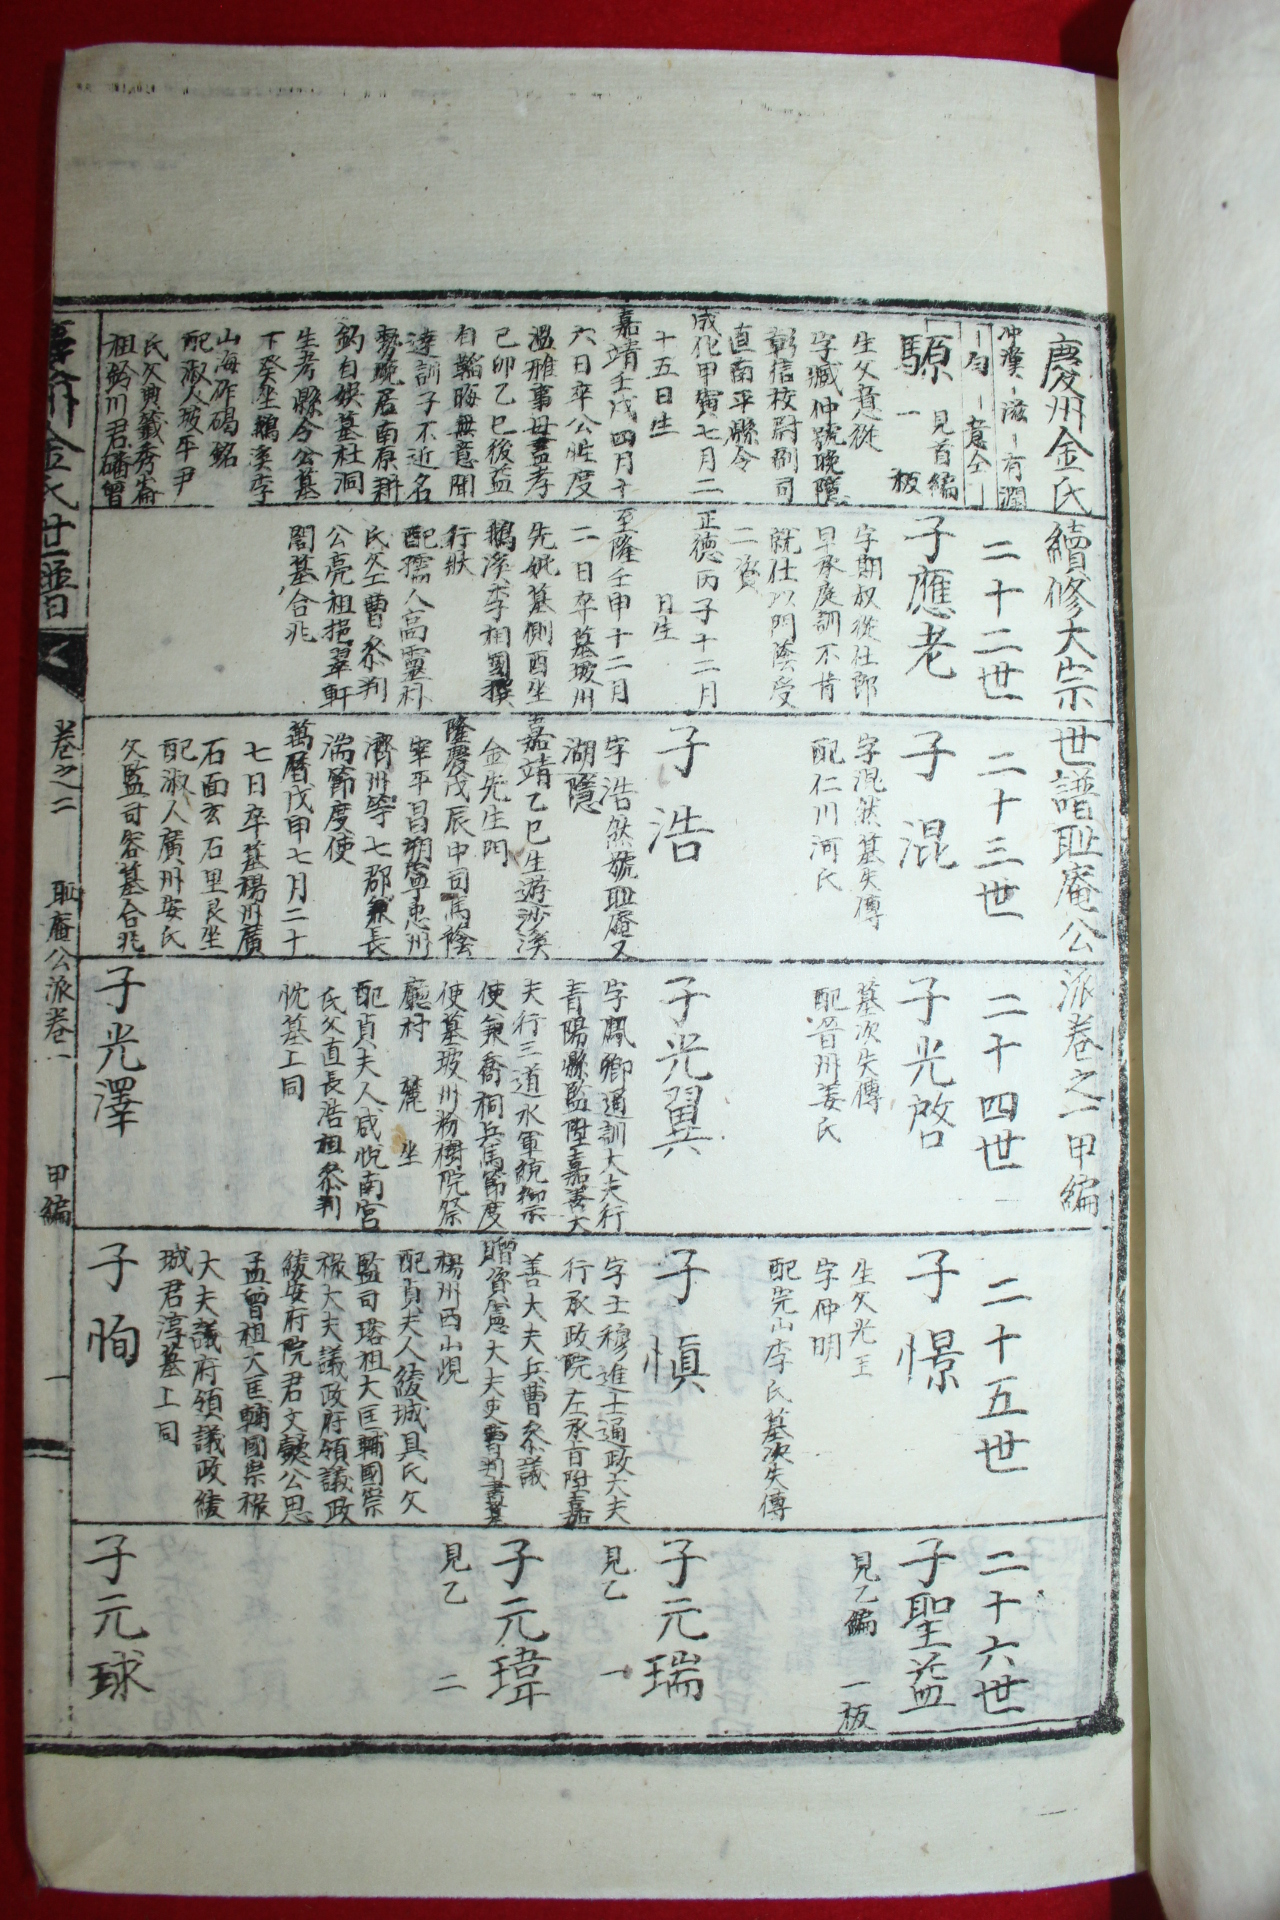 慶州金氏續修大宗世譜耻庵公派卷之一甲編
冲漢－滋－有潤
－勻－
騵
見首編
一板
生父意從
字臧仲號晩隱
彰信校尉副司
直南平縣令
成化甲寅七月二
十五日生
嘉靖壬戌四月十
六日卒公性度
溫雅事母盡孝
己卯乙巳後益
自韜晦無意聞
達訓子不近名
勢晩居南原耕
釣自娛墓杜洞
生考縣令公墓
下癸坐鵝溪李
山海作碣銘
配淑人坡平尹
氏父典籤秀崙
祖鈴川君磻曾
二十二世
子應老
字期叔從仕郎
早承庭訓不肯
就仕以門蔭受
二資
正德丙子十二月
日生
至隆壬申十二月
二日卒墓坡州
先妣墓側酉坐
鵝溪李相國撰
行狀
配孺人高靈朴
氏父工曹參判
公亮祖挹翠軒
誾墓合兆
二十三世
子混
字混然墓失傳
配仁川河氏
子浩
字浩然號耻庵又
湖隱
嘉靖乙巳生遊沙溪
金先生門
隆慶戊辰中司馬蔭
宰平昌朔寧忠州
濟州等七郡兼長
湍節度使
萬曆戊申七月二十
七日卒墓楊州廣
石面玄石里艮坐
配淑人廣州安氏
父監司容墓合兆
二十四世
子光啓
墓次失傳
配晉州姜氏
子光翼
字鳳卿通訓大夫行
靑陽縣監陞嘉善大
夫行三道水軍統禦
使兼喬桐兵馬節度
使墓坡州粉樹院祭
廳村　麓　坐
配貞夫人咸悅南宮
氏父直長浩祖參判
忱墓上同
子光澤
二十五世
子憬
生父光玉
字仲明
配完山李氏墓次失傳
子愼
字士穆進士通政大夫
行承政院左承旨陞嘉
善大夫兵曹參議
贈資憲大夫吏曹判書墓
楊州西山峴
配貞夫人綾城具氏父
監司㻶祖大匡輔國崇
祿大夫議政府領議政
綾安府院君文懿公思
孟曾祖大匡輔國崇祿
大夫議府領議政綾
城君淳墓上同
子恂
二十六世
子聖益
見乙編　一板
子元瑞
見乙　一
子元瑋
見乙　二
子元球
慶州金氏世譜
卷之二　耻庵公派卷一　甲編　一